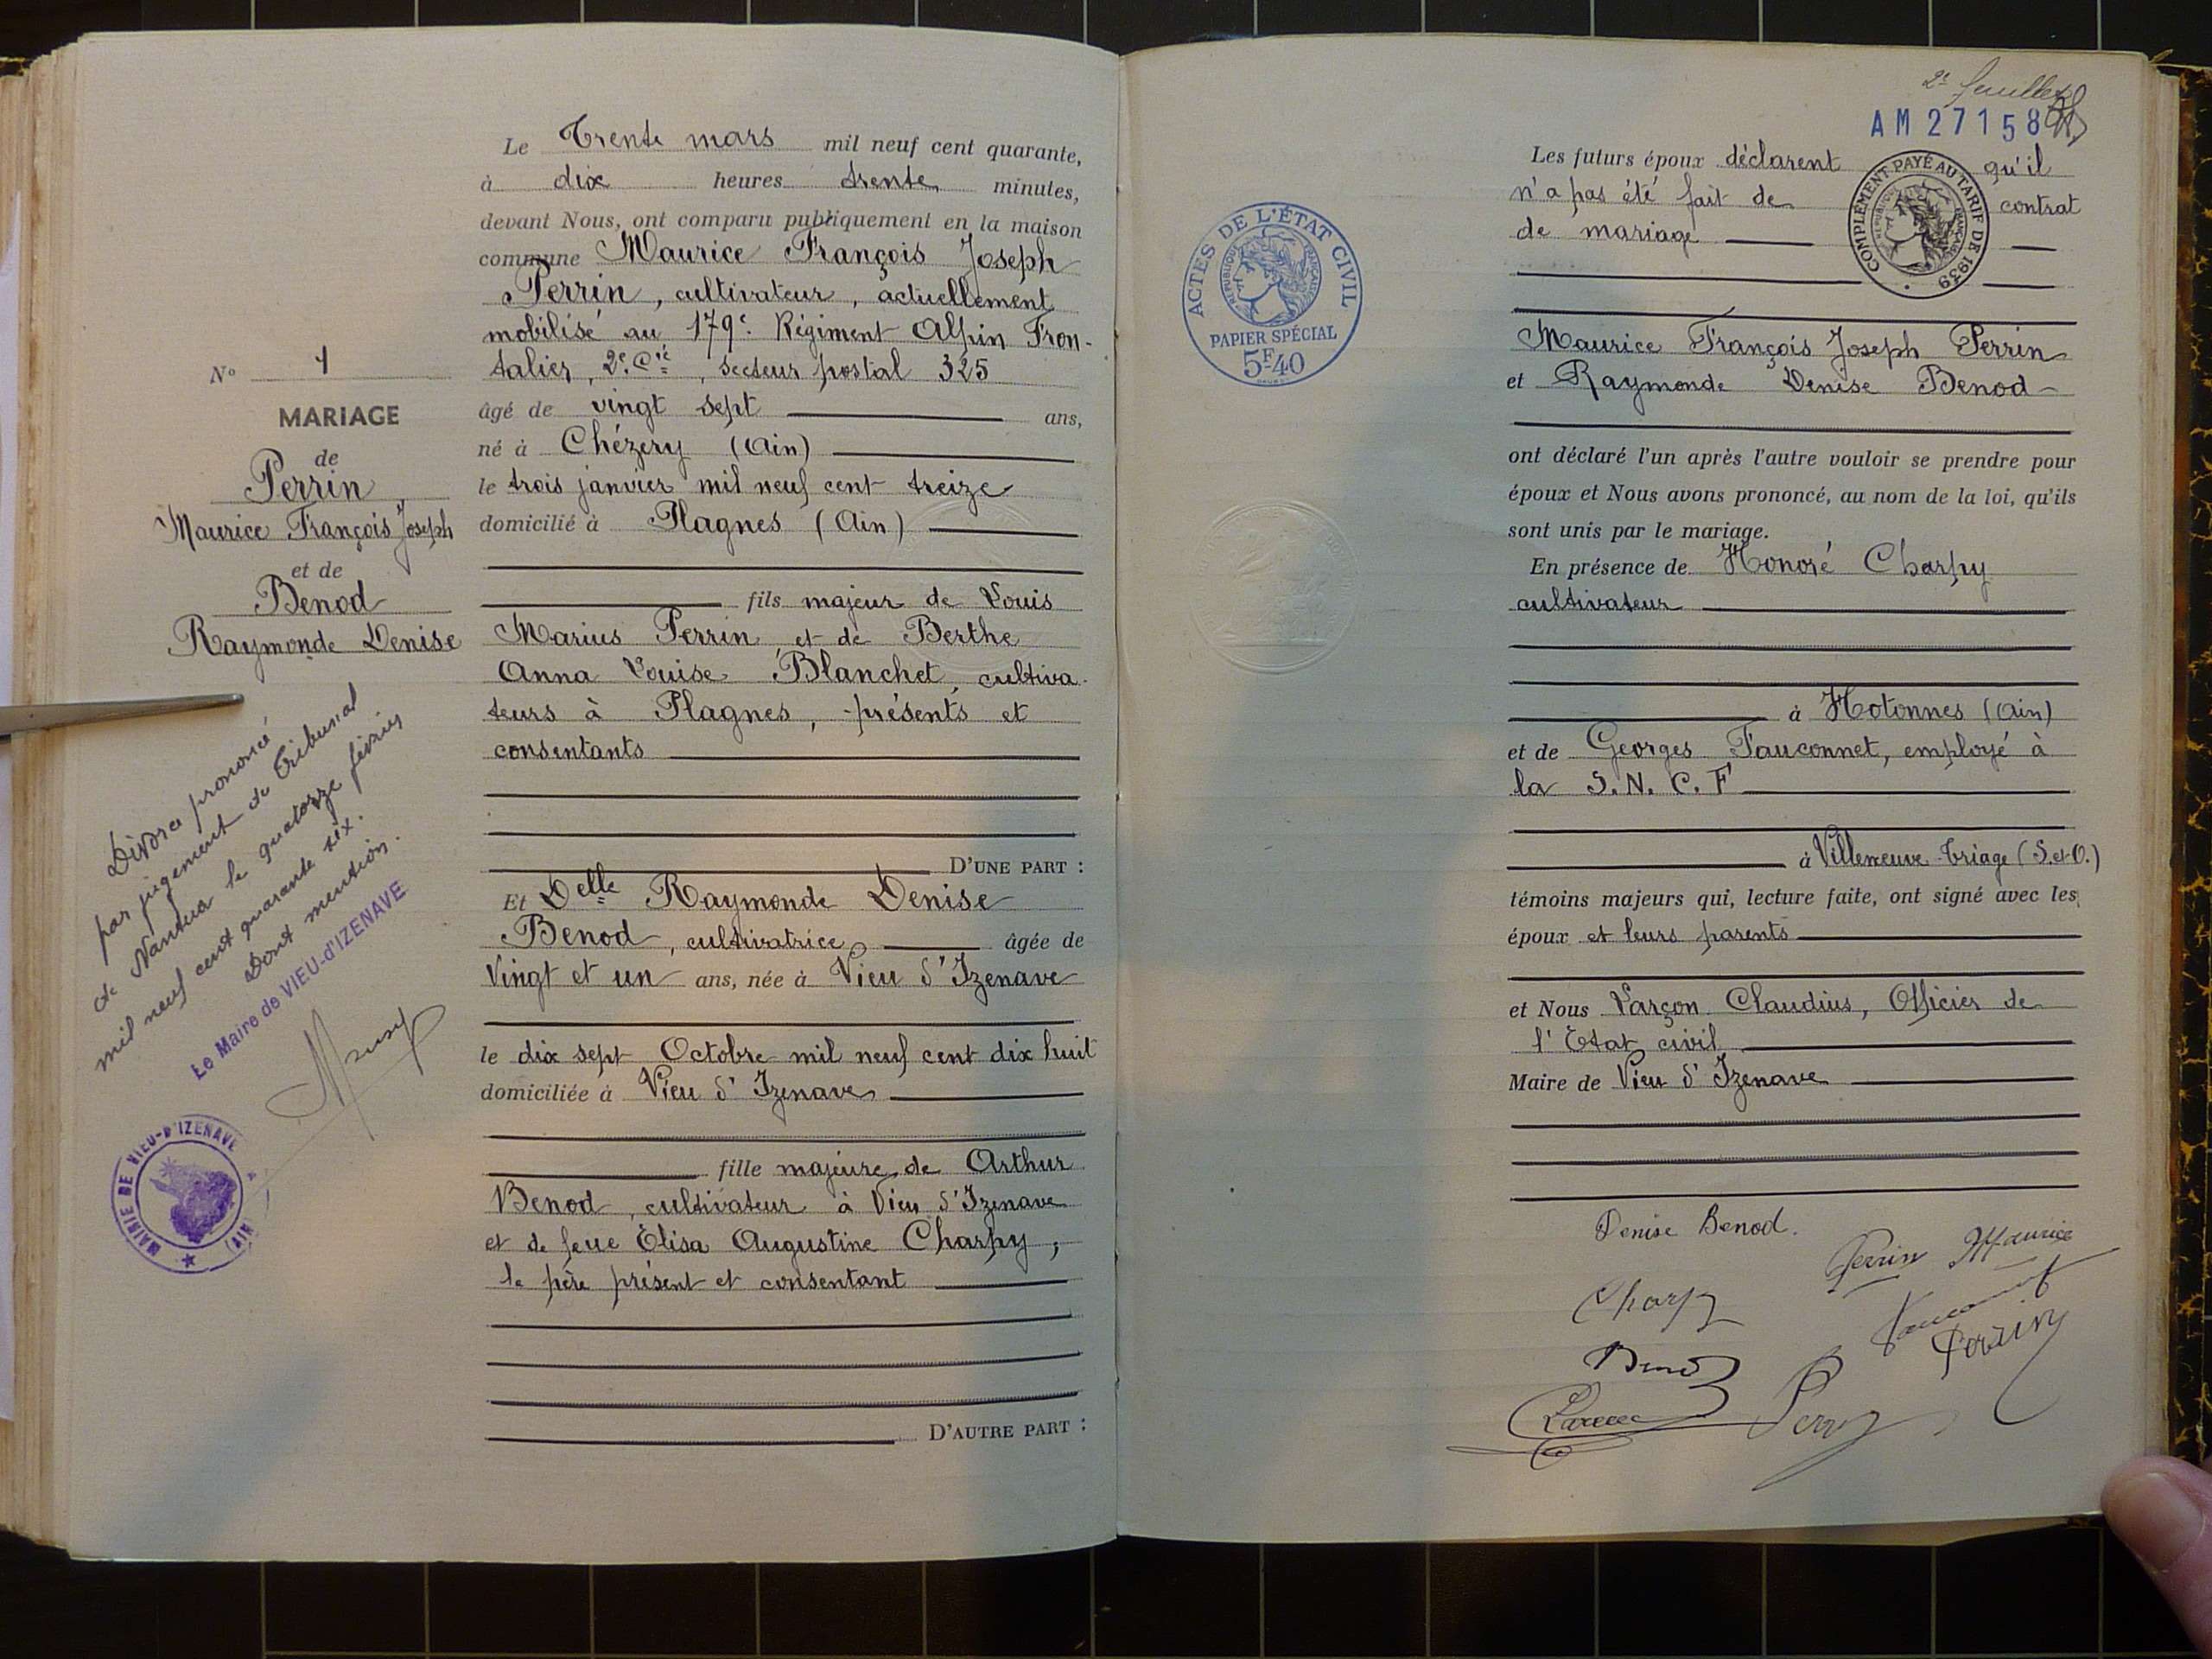 Le Trente mars mil neuf cent quarante,
à dix heures trente minutes,
devant Nous, ont comparu publiquement en la maison
commune Maurice François Joseph
Perrin, cultivateur, actuellement
mobilisé au 179e Régiment Alpin Fron-
talier, 2e Cie, secteur postal 325
âgé de vingt sept ans,
né à Chézery (Ain)
le trois janvier mil neuf cent treize
domicilié à Plagnes (Ain)
fils majeur de Louis
Marius Perrin et de Berthe
Anna Louise Blanchet, cultiva-
teurs à Plagnes, présents et
consentants
D'UNE PART :
Et Delle Raymonde Denise
Benod, cultivatrice, âgée de
Vingt et un ans, née à Vieu d'Izenave
le dix sept Octobre mil neuf cent dix huit
domiciliée à Vieu d'Izenave
fille majeure de Arthur
Benod, cultivateur à Vieu d'Izenave
et de feue Élisa Augustine Charpy,
le père présent et consentant
D'AUTRE PART :
No 1
MARIAGE
de
Perrin,
Maurice François Joseph
et de
Benod
Raymonde Denise
Divorce prononcé
par jugement du Tribunal
de Nantua le quatorze février
mil neuf cent quarante six.
Dont mention.
Le Maire de VIEU-d'IZENAVE
MAIRIE DE VIEU-D'IZENAVE (AIN)
2e feuillet
AM 27158
Les futurs époux déclarent qu'il
n'a pas été fait de contrat
de mariage
COMPLÉMENT PAYÉ AU TARIF DE 1939
RÉPUBLIQUE FRANÇAISE
ACTES DE L'ÉTAT CIVIL
RÉPUBLIQUE FRANÇAISE
PAPIER SPÉCIAL
5F40
Maurice François Joseph Perrin
et Raymonde Denise Benod
ont déclaré l'un après l'autre vouloir se prendre pour
époux et Nous avons prononcé, au nom de la loi, qu'ils
sont unis par le mariage.
En présence de Honoré Charpy
cultivateur
à Hotonnes (Ain)
et de Georges Fauconnet, employé à
la S.N.C.F
à Villeneuve-Triage (S.et-O.)
témoins majeurs qui, lecture faite, ont signé avec les
époux et leurs parents
et Nous Larçon Claudius, Officier de
l'Etat civil
Maire de Vieu d'Izenave
Denise Benod.
Perrin Maurice
Charpy
Fauconnet
Perrin
Benod
Larçon
Perrin